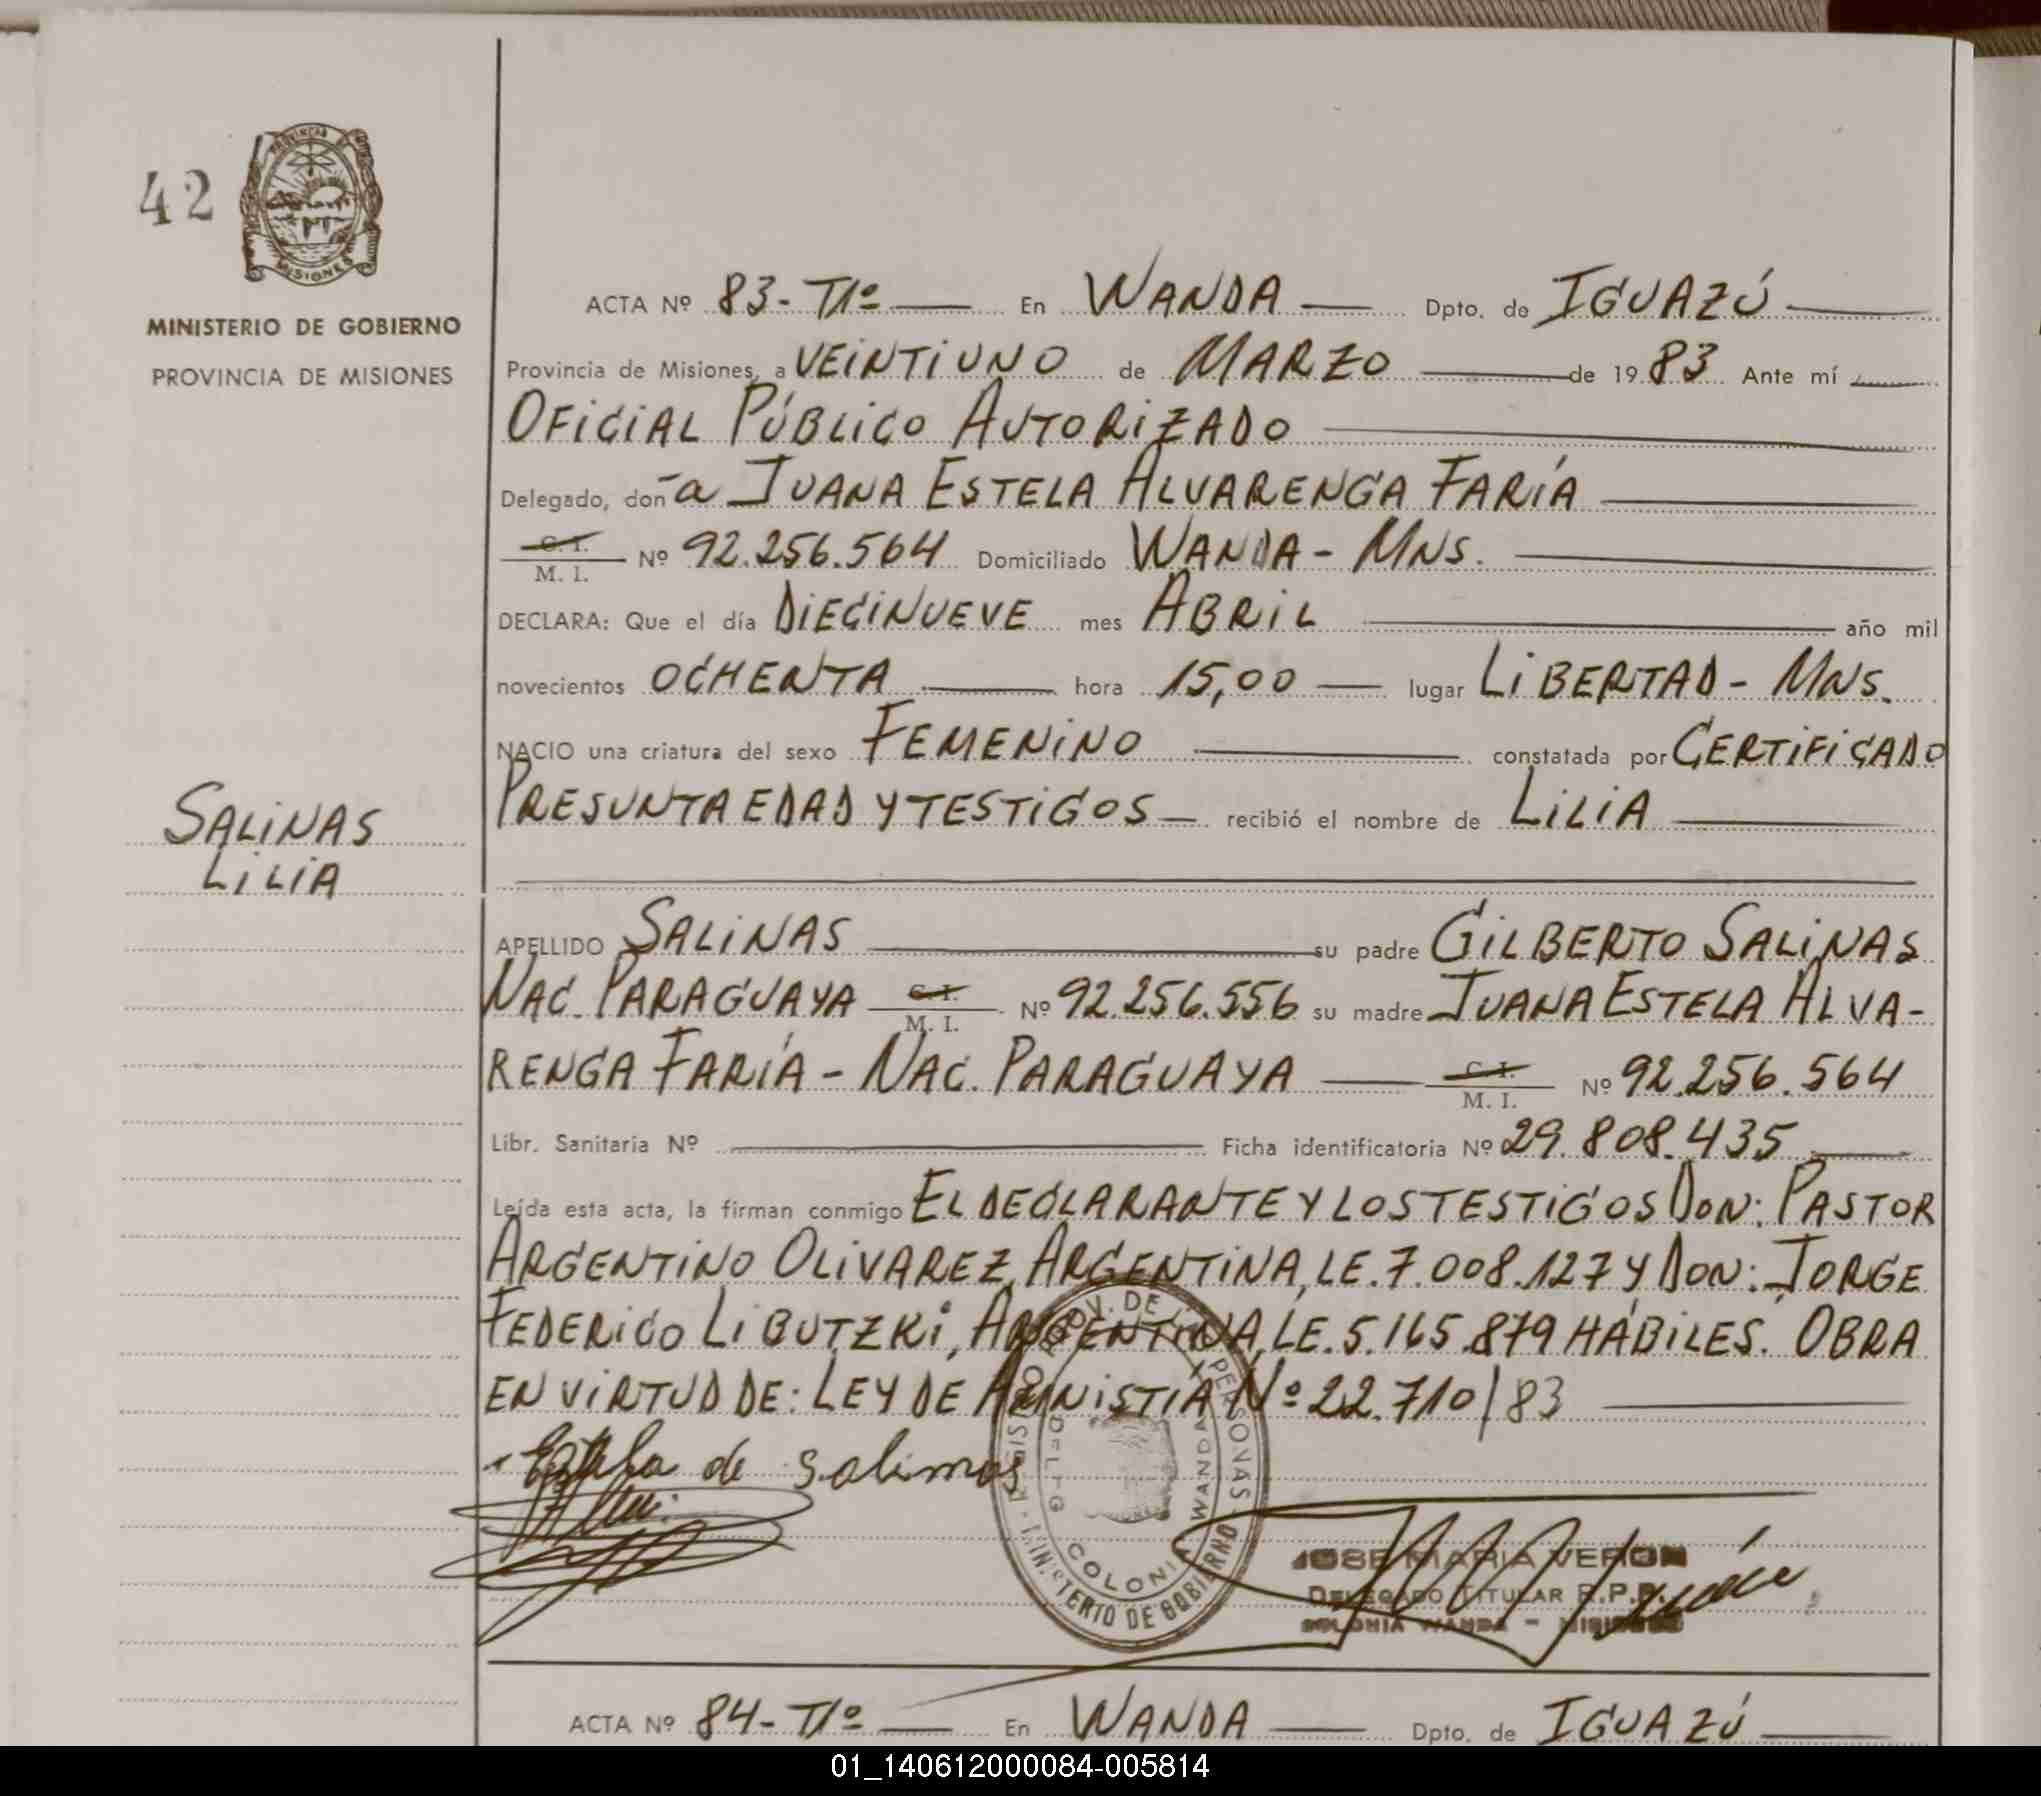 42
PROVINCIA DE
MISIONES
MINISTERIO DE GOBIERNO
PROVINCIA DE MISIONES
ACTA Nº 83-T1º En WANDA Dpto. de IGUAZÚ
Provincia de Misiones, a VEINTIUNO de MARZO de 1983 Ante mí
OFICIAL PÚBLICO AUTORIZADO
Delegado, don-a JUANA ESTELA ALVARENGA FARÍA
C. I. M. I. Nº 92.256.564 Domiciliado WANDA - MNS.
DECLARA: Que el día DIECINUEVE mes ABRIL año mil
novecientos OCHENTA hora 15,00 lugar LIBERTAD - MNS.
NACIO una criatura del sexo FEMENINO constatada por CERTIFICADO
PRESUNTA EDAD Y TESTIGOS recibió el nombre de LILIA
SALINAS
LILIA
APELLIDO SALINAS su padre GILBERTO SALINAS
NAC. PARAGUAYA C. I. M. I. Nº 92.256.556 su madre JUANA ESTELA ALVA-
RENGA FARÍA - NAC. PARAGUAYA C. I. M. I. Nº 92.256.564
Libr. Sanitaria Nº Ficha identificatoria Nº 29.808.435
Leída esta acta, la firman conmigo EL DECLARANTE Y LOS TESTIGOS DON: PASTOR
ARGENTINO OLIVAREZ, ARGENTINA, LE. 7.008.127 Y DON: JORGE
FEDERICO LIBUTZKI, ARGENTINA, LE. 5.165.879 HÁBILES. OBRA
EN VIRTUD DE: LEY DE AMNISTIA Nº 22.710/83
Estela de Salinas
REGISTRO PROV. DE LAS PERSONAS
MINISTERIO DE GOBIERNO
DELEG. COLONIA WANDA
JOSE MARIA VERON
DELEGADO TITULAR R.P.P.
COLONIA WANDA - MISIONES
ACTA Nº 84-T1º En WANDA Dpto. de IGUAZÚ
01_140612000084-005814